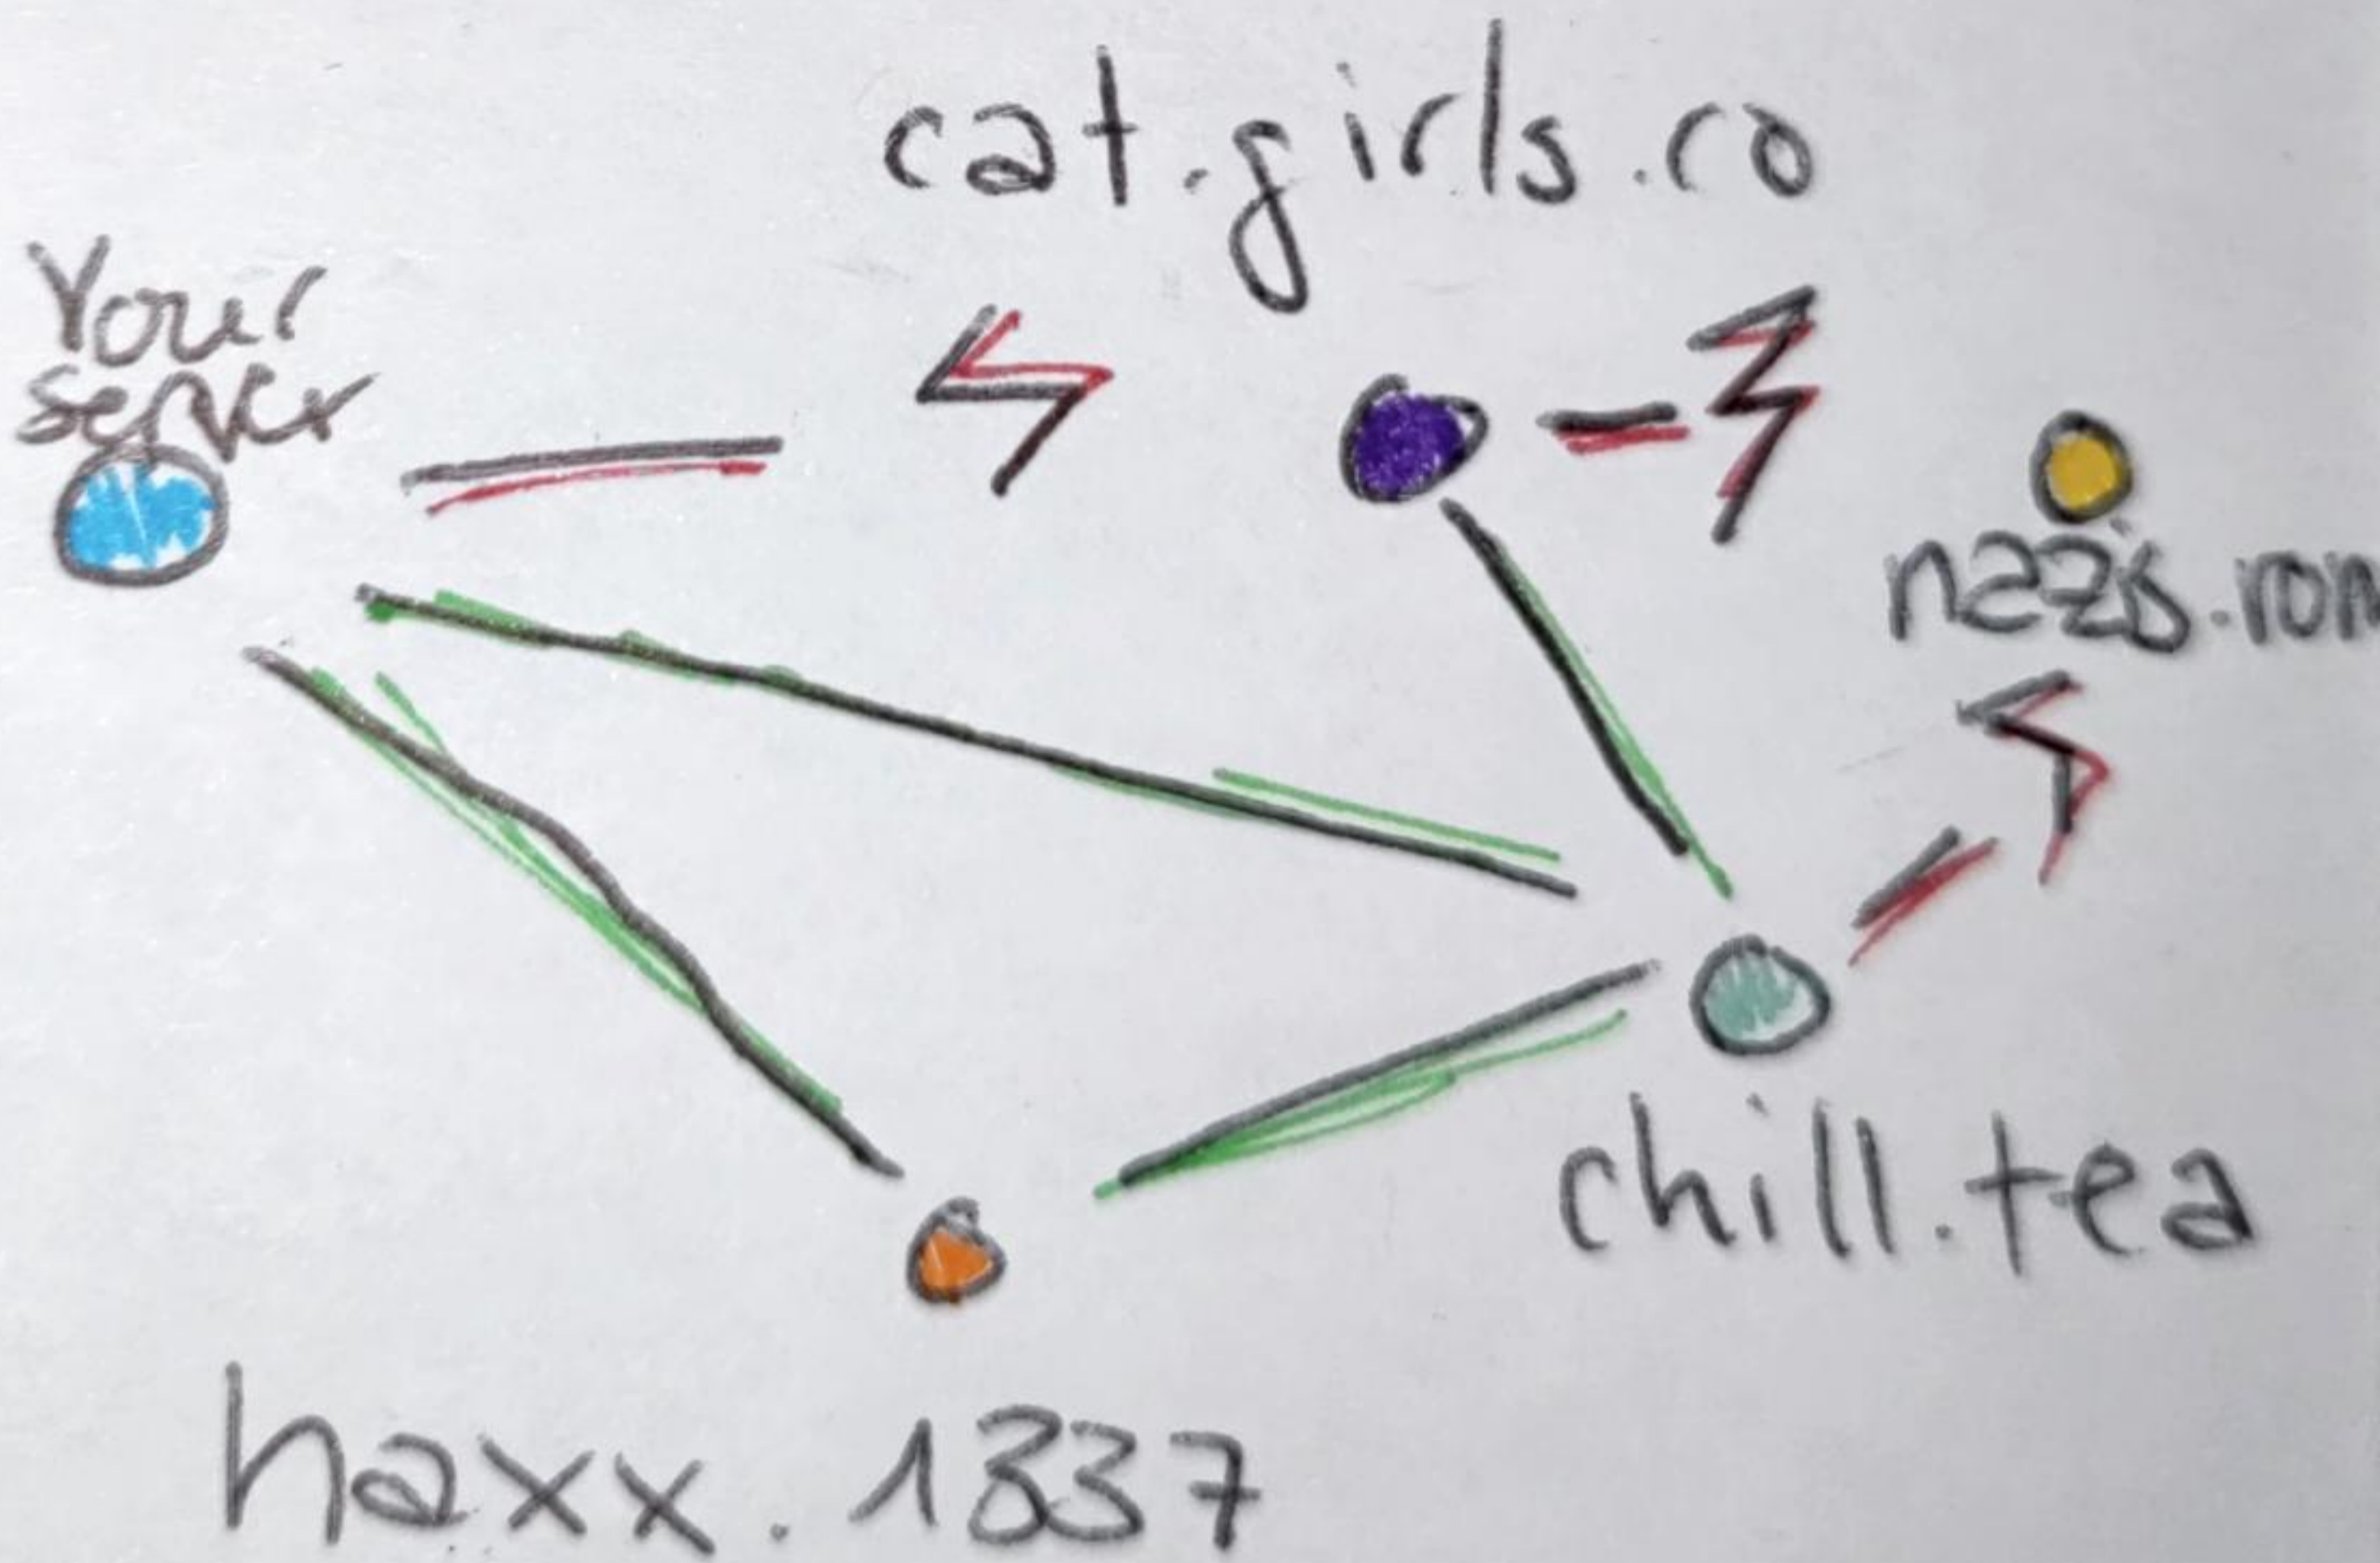 cat.girls.co
Your
server
nazis.rom
chill.tea
haxx.1337